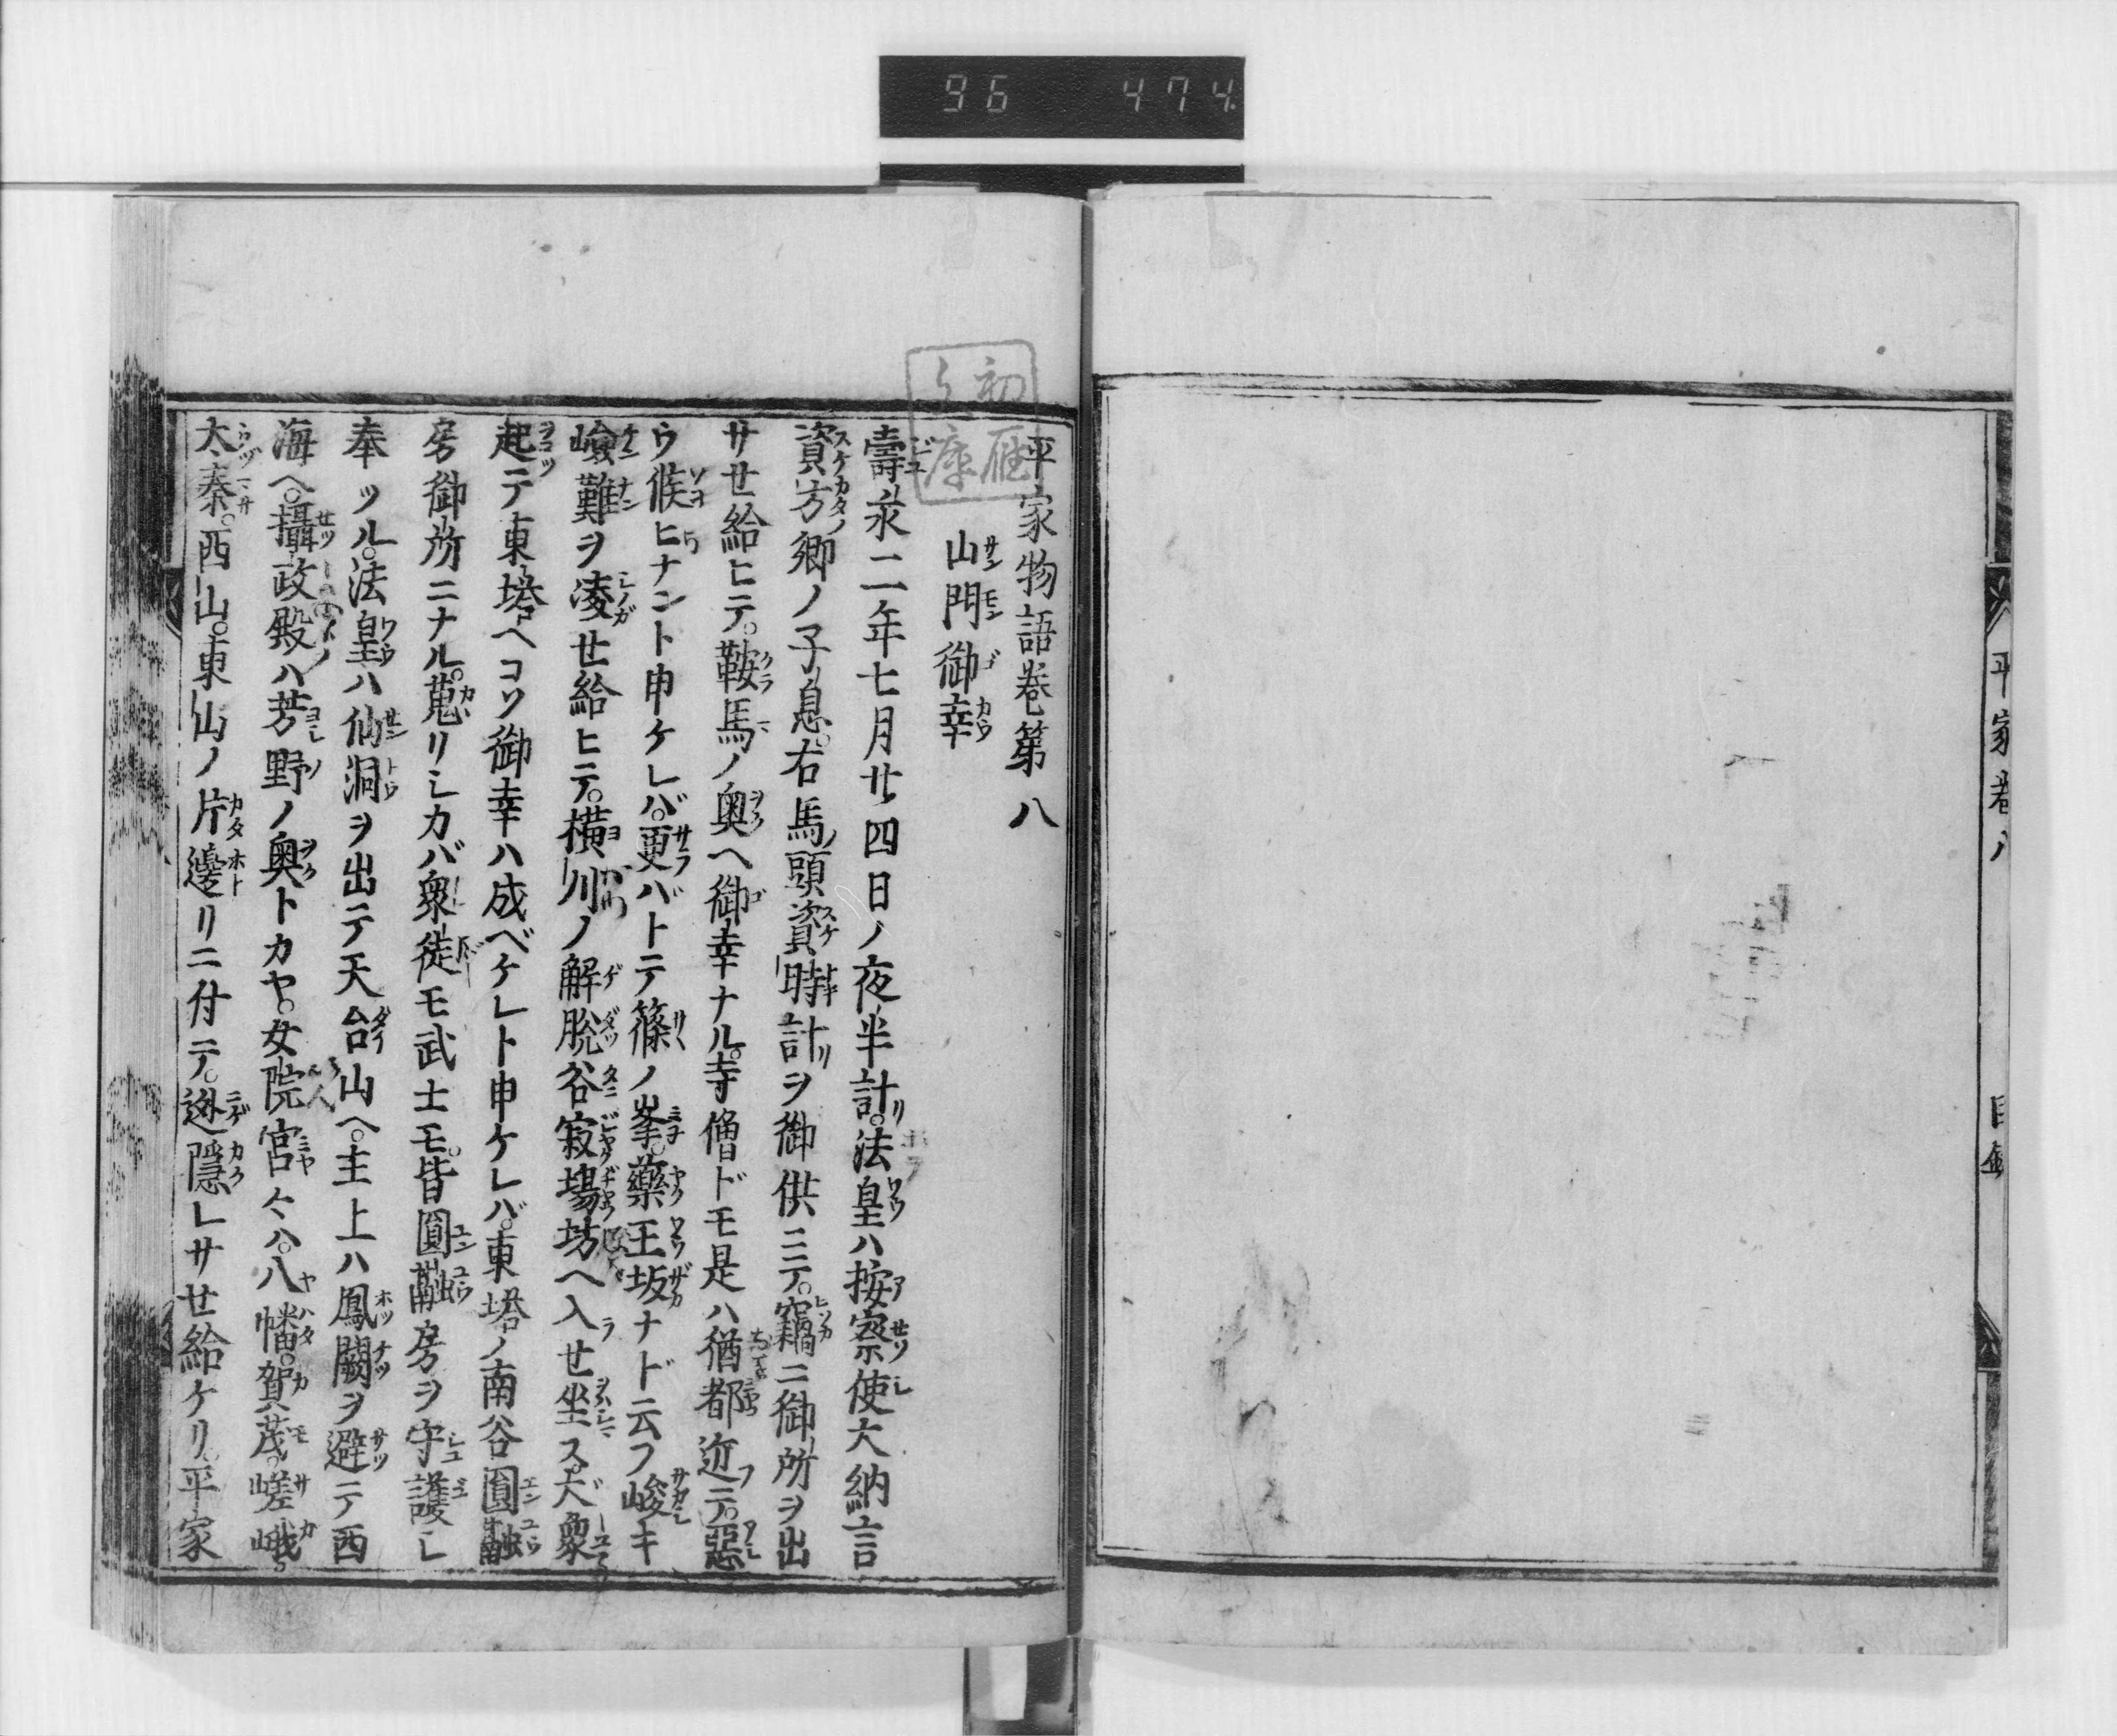 96 474
平家卷八
目錄
初雁
平家物語卷第八
山門御幸
壽永二年七月廿四日ノ夜半計リ。法皇ハ按察使大納言
資方卿ノ子息。右馬頭資時計リヲ御供ニテ。竊ニ御所ヲ出
サセ給ヒテ。鞍馬ノ奥ヘ御幸ナル。寺僧ドモ是ハ猶都近フテ。惡
ウ候ヒナント申ケレバ。更バトテ篠ノ峯。藥王坂ナド云フ峻キ
嶮難ヲ凌セ給ヒテ。横川ノ解脱谷寂場坊ヘ入セ坐ス。大衆
起テ東塔ヘコソ御幸ハ成ベケレト申ケレバ。東塔ノ南谷圓融
房御所ニナル。蒐リシカバ衆徒モ武士モ。皆圓融房ヲ守護シ
奉ツル。法皇ハ仙洞ヲ出テ天台山ヘ。主上ハ鳳闕ヲ避テ西
海ヘ。攝政殿ハ芳野ノ奥トカヤ。女院宮々ハ。八幡。賀茂。嵯峨。
太秦。西山。東山ノ片邊リニ付テ。迯隱レサセ給ケリ。平家